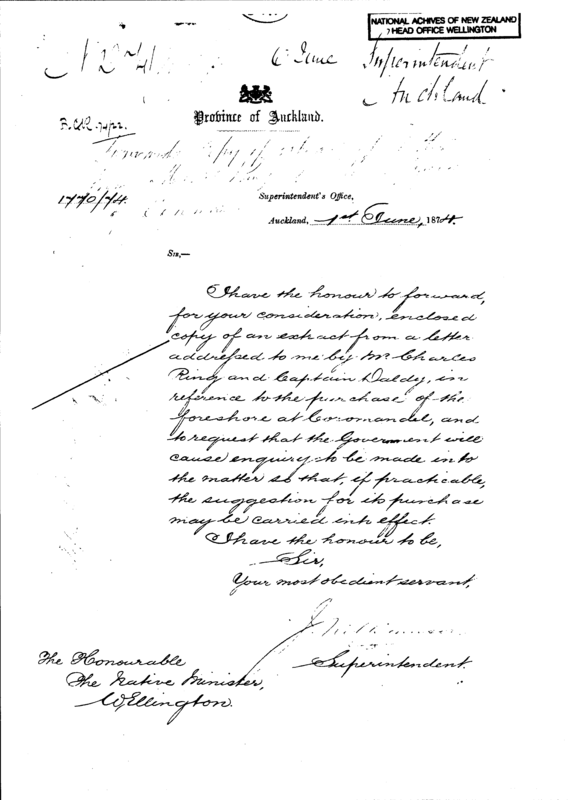 NATIONAL ACHIVES OF NEW ZEALAND
HEAD OFFICE WELLINGTON
6 June Superintendent
Auckland.
Province of Auckland.
1770/74.
Superintendent's Office,
Auckland, 1st June, 1874.
SIR,—
I have the honour to forward,
for your consideration, enclosed
copy of an extract from a letter
addressed to me by Mr Charles
Ring and Captain Daldy, in
reference to the purchase of the
foreshore at Coromandel, and
to request that the Government will
cause enquiry to be made into
the matter so that, if practicable,
the suggestion for its purchase
may be carried into effect.
I have the honour to be,
Sir,
Your most obedient servant,
Superintendent.
The Honourable
The Native Minister,
Wellington.